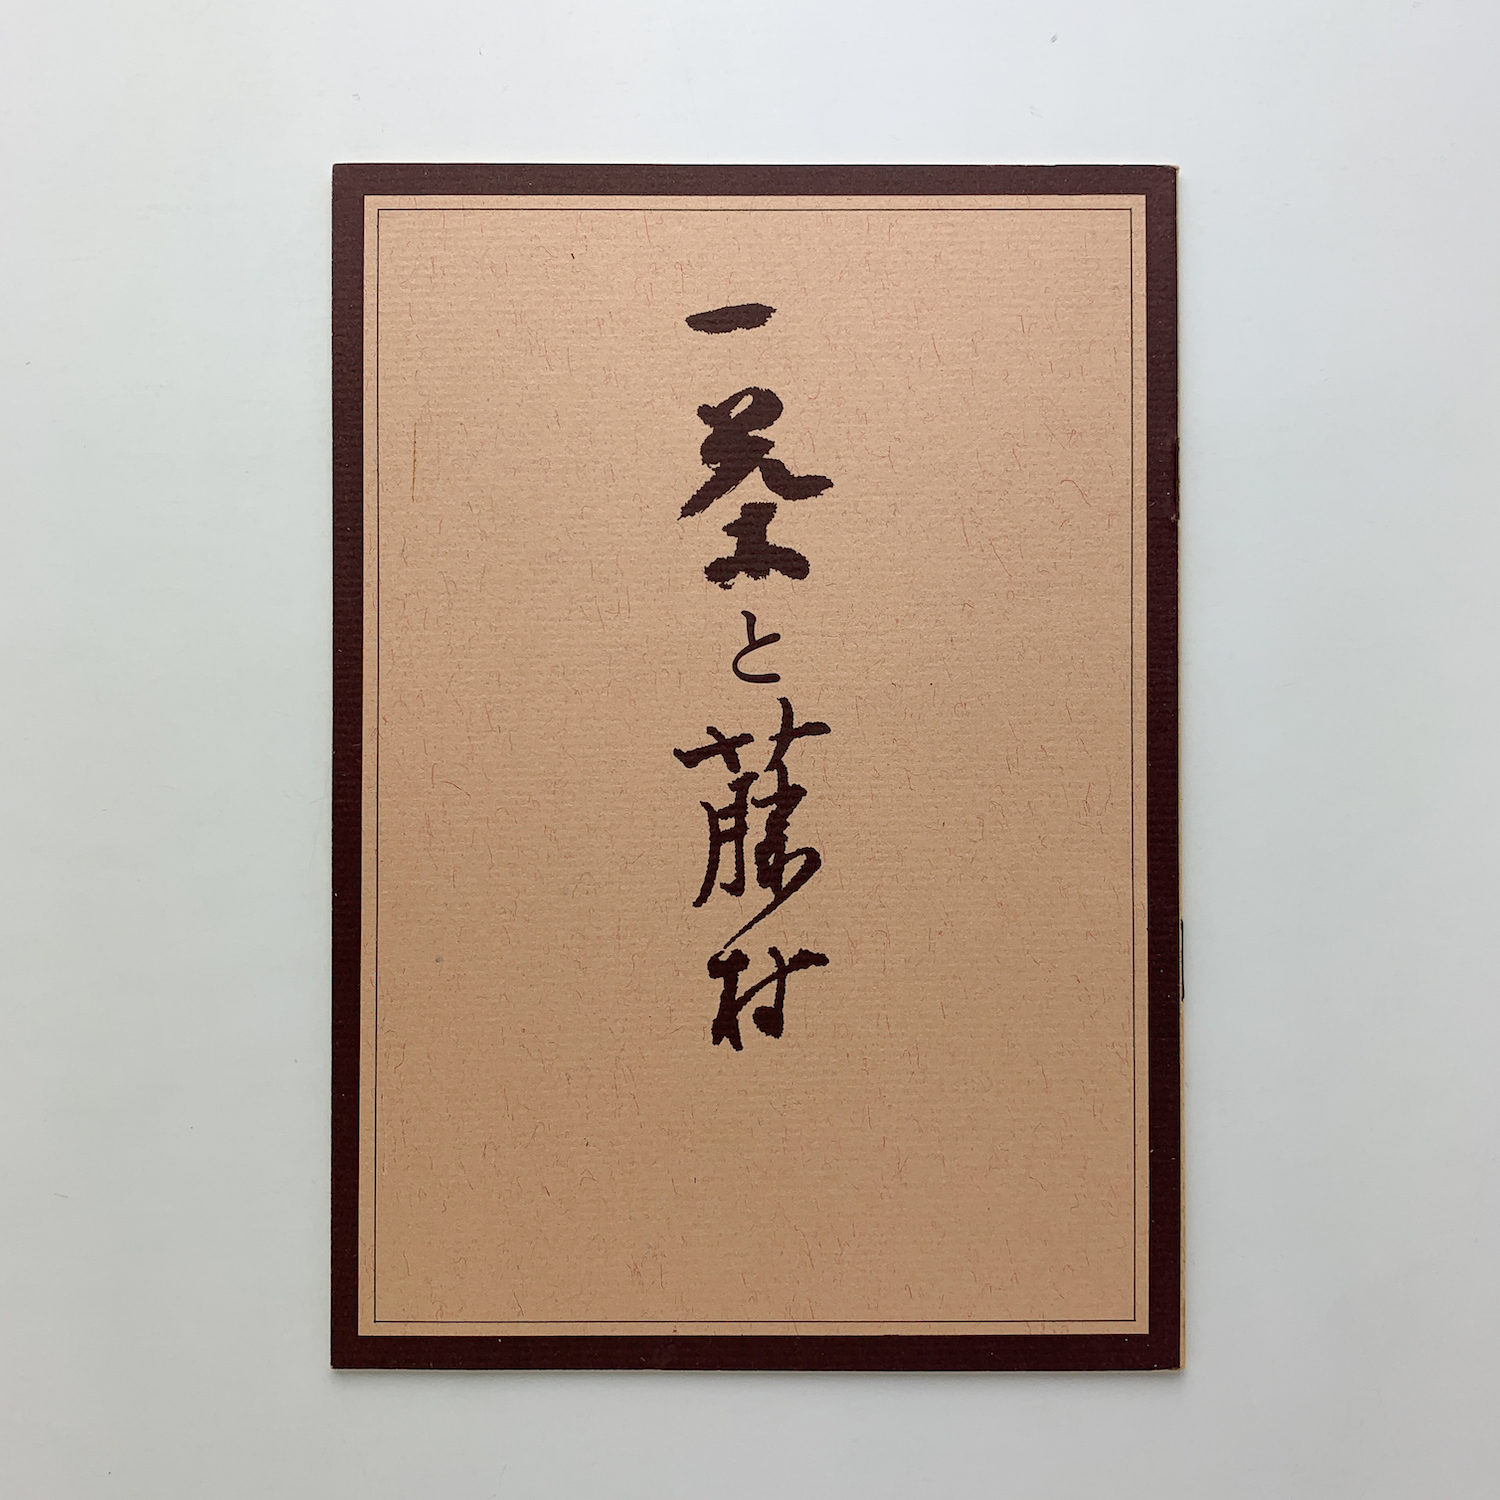 一茶と藤村